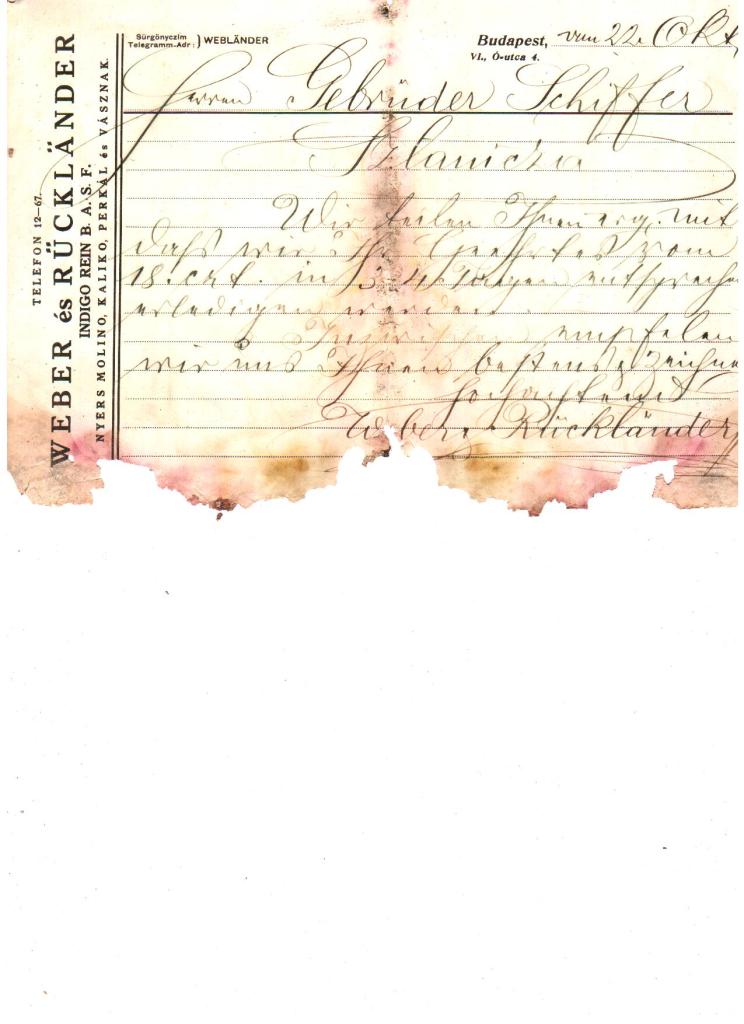 TELEFON 12—67.
WEBER és RÜCKLÄNDER
INDIGO REIN B. A. S. F.
NYERS MOLINO, KALIKO, PERKÁL és VÁSZNAK.
Sürgönyczim
Telegramm-Adr.: } WEBLÄNDER
Budapest, vom 22. Okt.
VI., Ó-utca 4.
Herren Gebrüder Schiffer
Szlanicza
Wir teilen Ihnen erg. mit
daß wir Ihr Geehrtes vom
18. crt. in 3-4 Tagen entspreche
erledigen werden.
Inzwischen empfelen
wir uns Ihnen bestens & zeichne
hochachtend
Weber & Rückländer